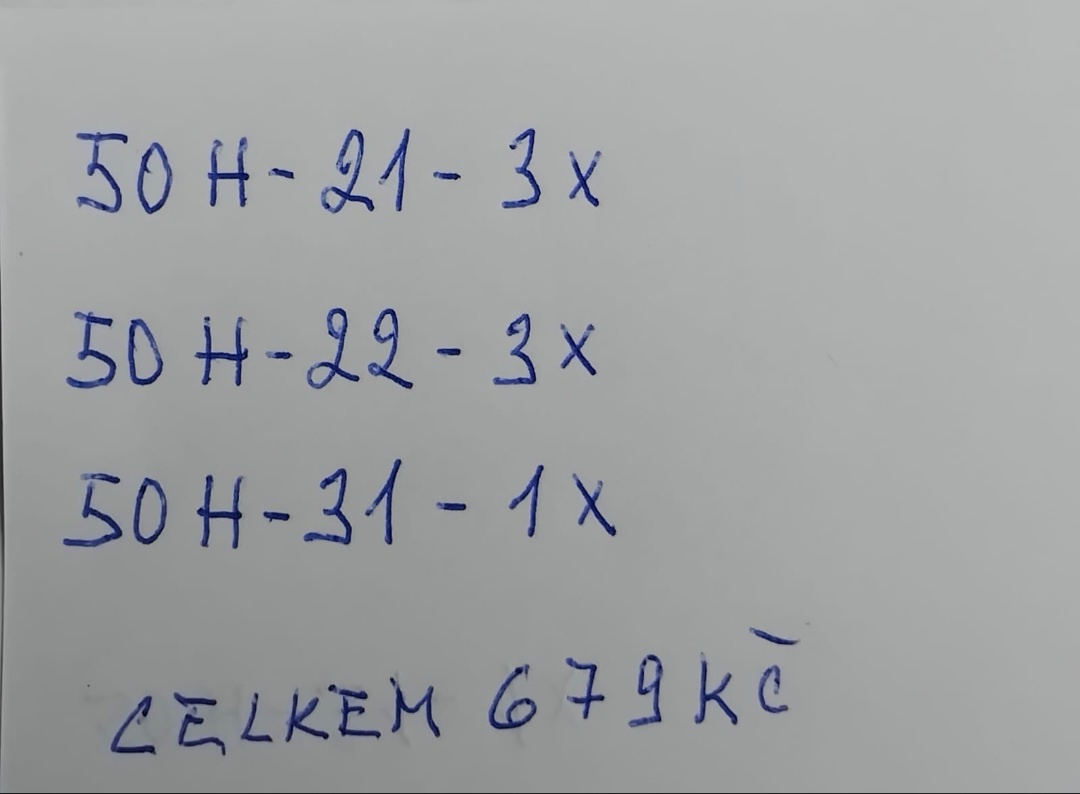 50 H - 21 - 3 x
50 H - 22 - 3 x
50 H - 31 - 1 x
CELKEM 679 Kč